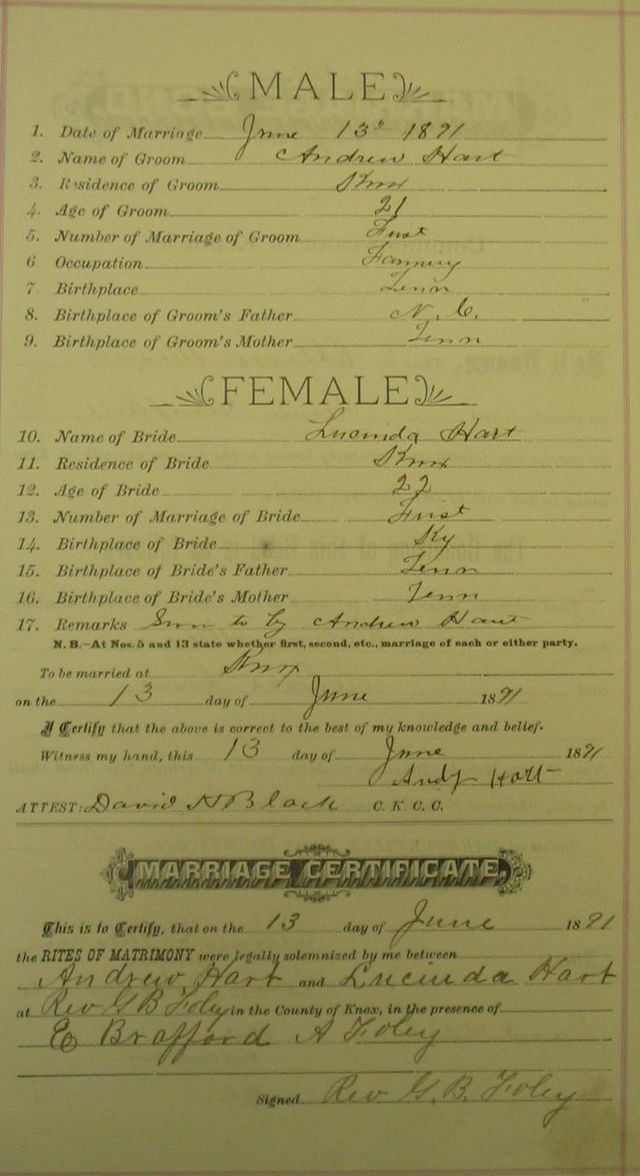 MALE
1. Date of Marriage June 13th 1891
2. Name of Groom Andrew Hart
3. Residence of Groom Knox
4. Age of Groom 21
5. Number of Marriage of Groom First
6 Occupation Farming
7 Birthplace Tenn
8. Birthplace of Groom's Father N. C.
9. Birthplace of Groom's Mother Tenn
FEMALE
10. Name of Bride Lucinda Hart
11. Residence of Bride Knox
12. Age of Bride 22
13. Number of Marriage of Bride First
14. Birthplace of Bride Ky
15. Birthplace of Bride's Father Tenn
16. Birthplace of Bride's Mother Tenn
17. Remarks to by Andrew Hart
N. B.—At Nos. 5 and 13 state whether first, second, etc., marriage of each or either party.
To be married at Knox
on the 13 day of June 1891
I Certify that the above is correct to the best of my knowledge and belief.
Witness my hand, this 13 day of June 1891
Andy Hart
ATTEST: David N Black C. K. C. C.
MARRIAGE CERTIFICATE.
This is to Certify, that on the 13 day of June 1891
the RITES OF MATRIMONY were legally solemnized by me between
Andrew Hart and Lucinda Hart
at Rev G B Foley in the County of Knox, in the presence of
E Brafford A Foley
Signed Rev G. B. Foley